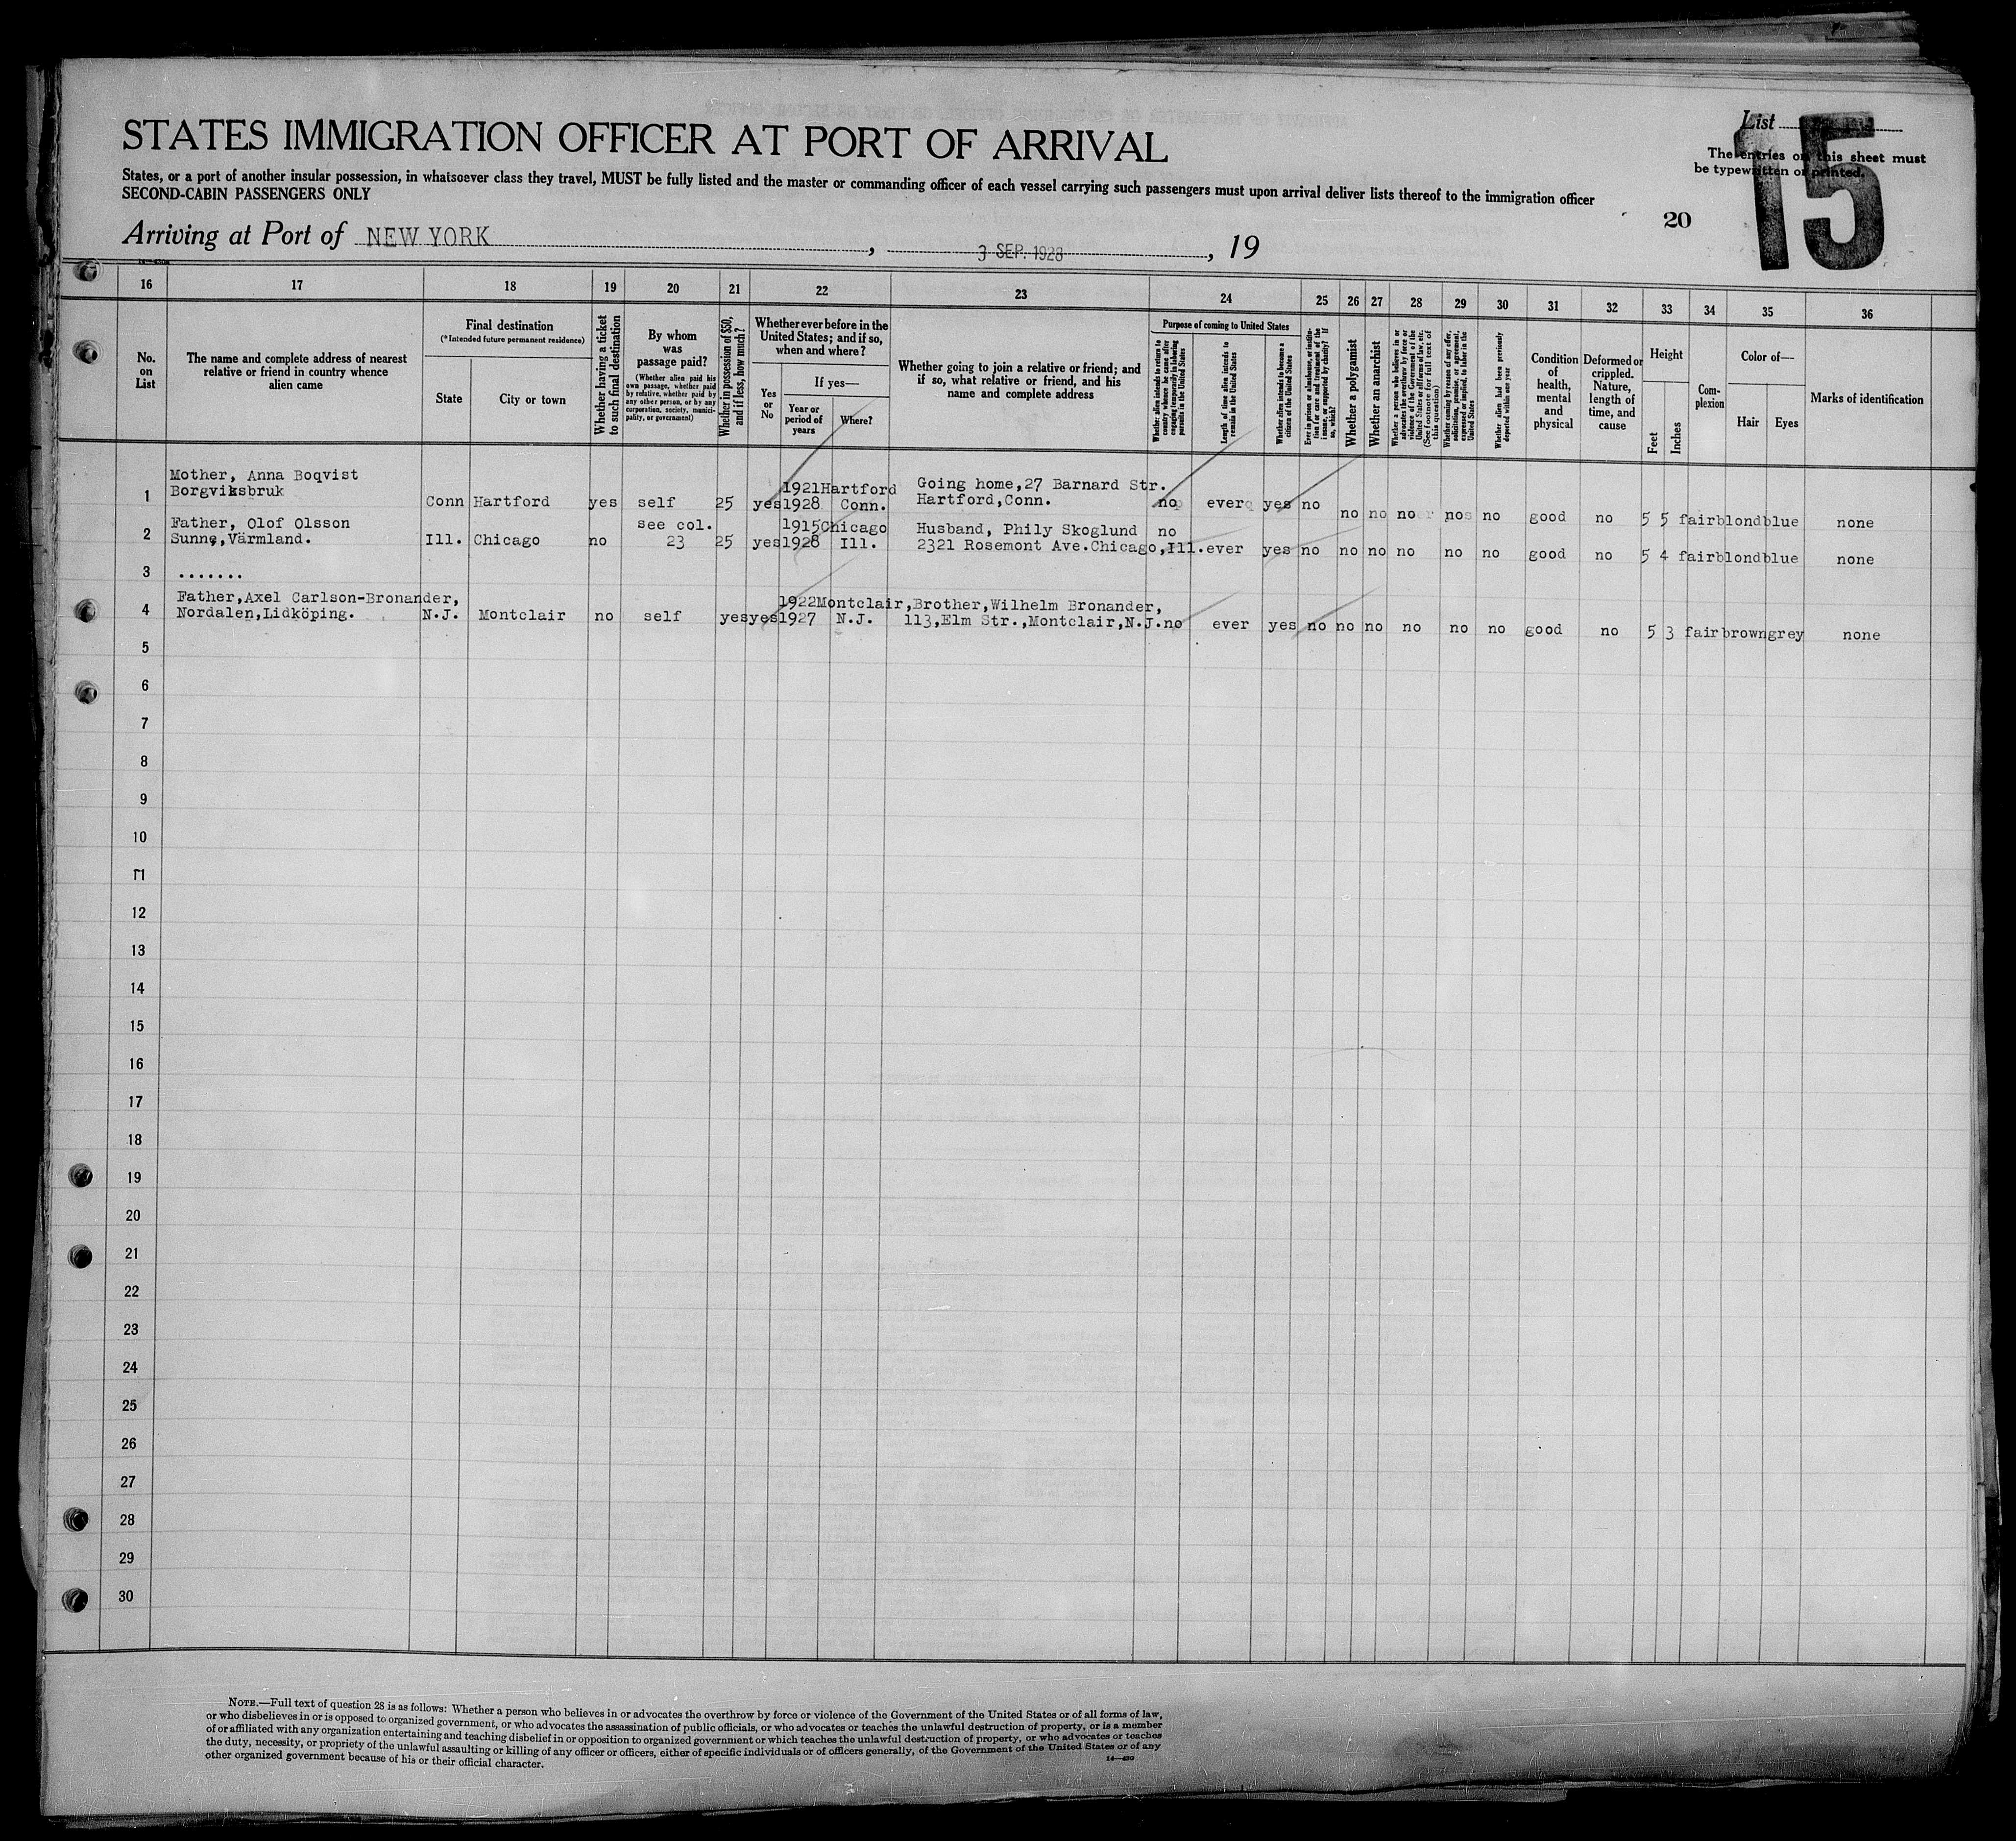 STATES IMMIGRATION OFFICER AT PORT OF ARRIVAL
List
15
The entries on this sheet must
be typewritten or printed.
States, or a port of another insular possession, in whatsoever class they travel, MUST be fully listed and the master or commanding officer of each vessel carrying such passengers must upon arrival deliver lists thereof to the immigration officer
SECOND-CABIN PASSENGERS ONLY
20
Arriving at Port of NEW YORK , 3 SEP. 1928 , 19
16 17 18 19 20 21 22 23 24 25 26 27 28 29 30 31 32 33 34 35 36
No. on List
The name and complete address of nearest relative or friend in country whence alien came
Final destination
(*Intended future permanent residence)
State
City or town
Whether having a ticket to such final destination
By whom was passage paid?
(Whether alien paid his own passage, whether paid by relative, whether paid by any other person, or by any corporation, society, municipality, or government)
Whether in possession of $50, and if less, how much?
Whether ever before in the United States; and if so, when and where?
Yes or No
If yes—
Year or period of years
Where?
Whether going to join a relative or friend; and if so, what relative or friend, and his name and complete address
Purpose of coming to United States
Whether alien intends to return to country whence he came after engaging temporarily in laboring pursuits in the United States
Length of time alien intends to remain in the United States
Whether alien intends to become a citizen of the United States
Ever in prison or almshouse, or institution for care and treatment of the insane, or supported by charity? If so, which?
Whether a polygamist
Whether an anarchist
Whether a person who believes in or advocates the overthrow by force or violence of the Government of the United States or all forms of law, etc. (See footnote for full text of this question)
Whether coming by reason of any offer, solicitation, promise, or agreement, expressed or implied, to labor in the United States
Whether alien had been previously deported within one year
Condition of health, mental and physical
Deformed or crippled. Nature, length of time, and cause
Height
Feet
Inches
Complexion
Color of—
Hair
Eyes
Marks of identification
Mother, Anna Boqvist
1 Borgviksbruk Conn Hartford yes self 25 yes 1921 Hartford 1928 Conn. Going home,27 Barnard Str. Hartford,Conn. no ever yes no no no no no no good no 5 5 fair blond blue none
Father, Olof Olsson
2 Sunne,Värmland. Ill. Chicago no see col. 23 25 yes 1915 Chicago 1928 Ill. Husband, Phily Skoglund 2321 Rosemont Ave.Chicago,Ill. no ever yes no no no no no no good no 5 4 fair blond blue none
3 .......
Father,Axel Carlson-Bronander,
4 Nordalen,Lidköping. N.J. Montclair no self yes yes 1922 Montclair, 1927 N.J. Brother,Wilhelm Bronander, 113,Elm Str.,Montclair,N.J. no ever yes no no no no no no good no 5 3 fair brown grey none
5
6
7
8
9
10
11
12
13
14
15
16
17
18
19
20
21
22
23
24
25
26
27
28
29
30
NOTE.—Full text of question 28 is as follows: Whether a person who believes in or advocates the overthrow by force or violence of the Government of the United States or of all forms of law,
or who disbelieves in or is opposed to organized government, or who advocates the assassination of public officials, or who advocates or teaches the unlawful destruction of property, or is a member
of or affiliated with any organization entertaining and teaching disbelief in or opposition to organized government or which teaches the unlawful destruction of property, or who advocates or teaches
the duty, necessity, or propriety of the unlawful assaulting or killing of any officer or officers, either of specific individuals or of officers generally, of the Government of the United States or of any
other organized government because of his or their official character.
14—430